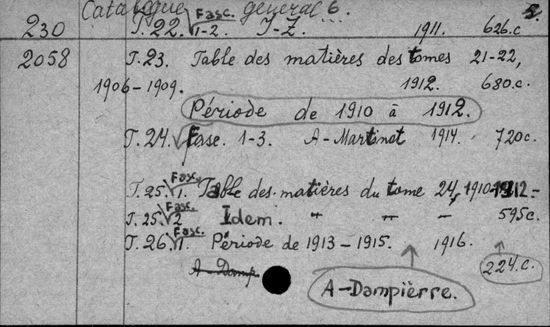 Catalogue général 6. 5.
230 T.22. Fasc. 1-2. I-Z. 1911. 626.c
2058 T.23. Table des matières des tomes 21-22,
1906-1909. 1912. 680.c
Période de 1910 à 1912.
T.24. Fasc. 1-3. A-Martinet 1914. 720c
T.25. Fasc. 1. Table des matières du tome 24, 1910-1912-
T.25. Fasc. 2 Idem. " " - 595c.
T.26. Fasc. 1. Période de 1913-1915. 1916.
A-Damp 224c.
A-Dampièrre.